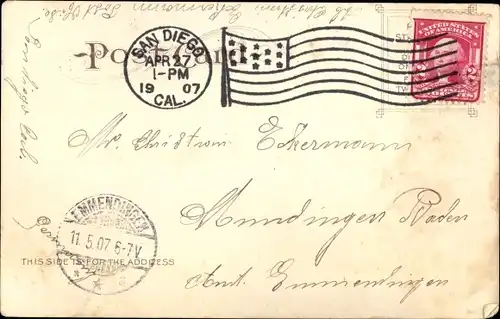 Post Card
SAN DIEGO
APR 27
1-PM
1907
CAL.
UNITED STATES
OF AMERICA
2
TWO CENTS
San Diego Cal.
Mr. Christian Eckermann
Mundingen Baden
Amt. Emmendingen
EMMENDINGEN
11.5.07 6-7V
THIS SIDE IS FOR THE ADDRESS